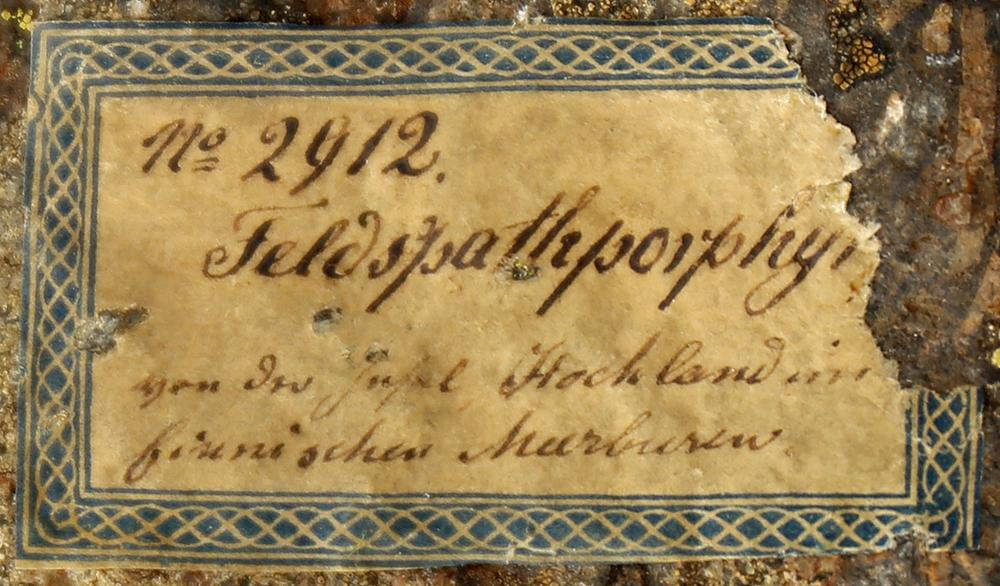 No 2912.
Feldspathporphyr
von der Insel Hochland im
finnischen Meerbusen